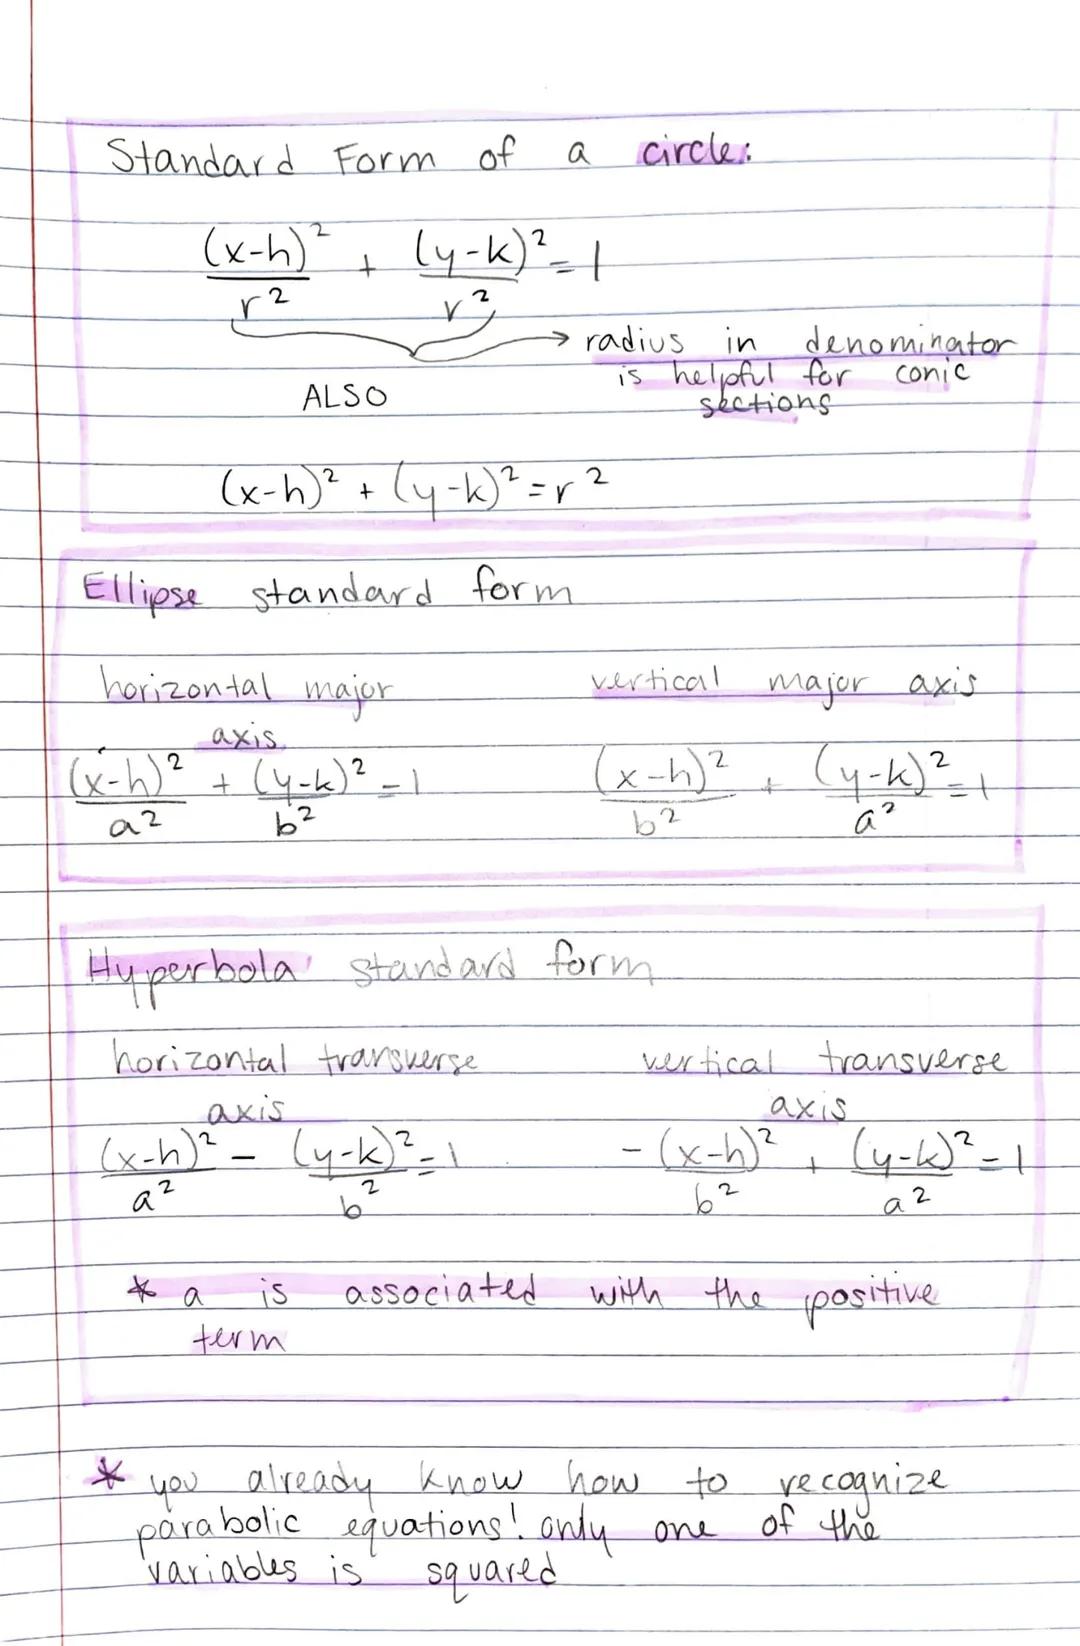 Standard Form of a circle:
(x-h)²/r² + (y-k)²/r² = 1
→ radius in denominator
is helpful for conic
sections
ALSO
(x-h)² + (y-k)² = r²
Ellipse standard form
horizontal major
axis
(x-h)²/a² + (y-k)²/b² = 1
vertical major axis
(x-h)²/b² + (y-k)²/a² = 1
Hyperbola standard form
horizontal transverse
axis
(x-h)²/a² - (y-k)²/b² = 1
vertical transverse
axis
-(x-h)²/b² + (y-k)²/a² = 1
* a is associated with the positive
term
* you already know how to recognize
parabolic equations! only one of the
variables is squared